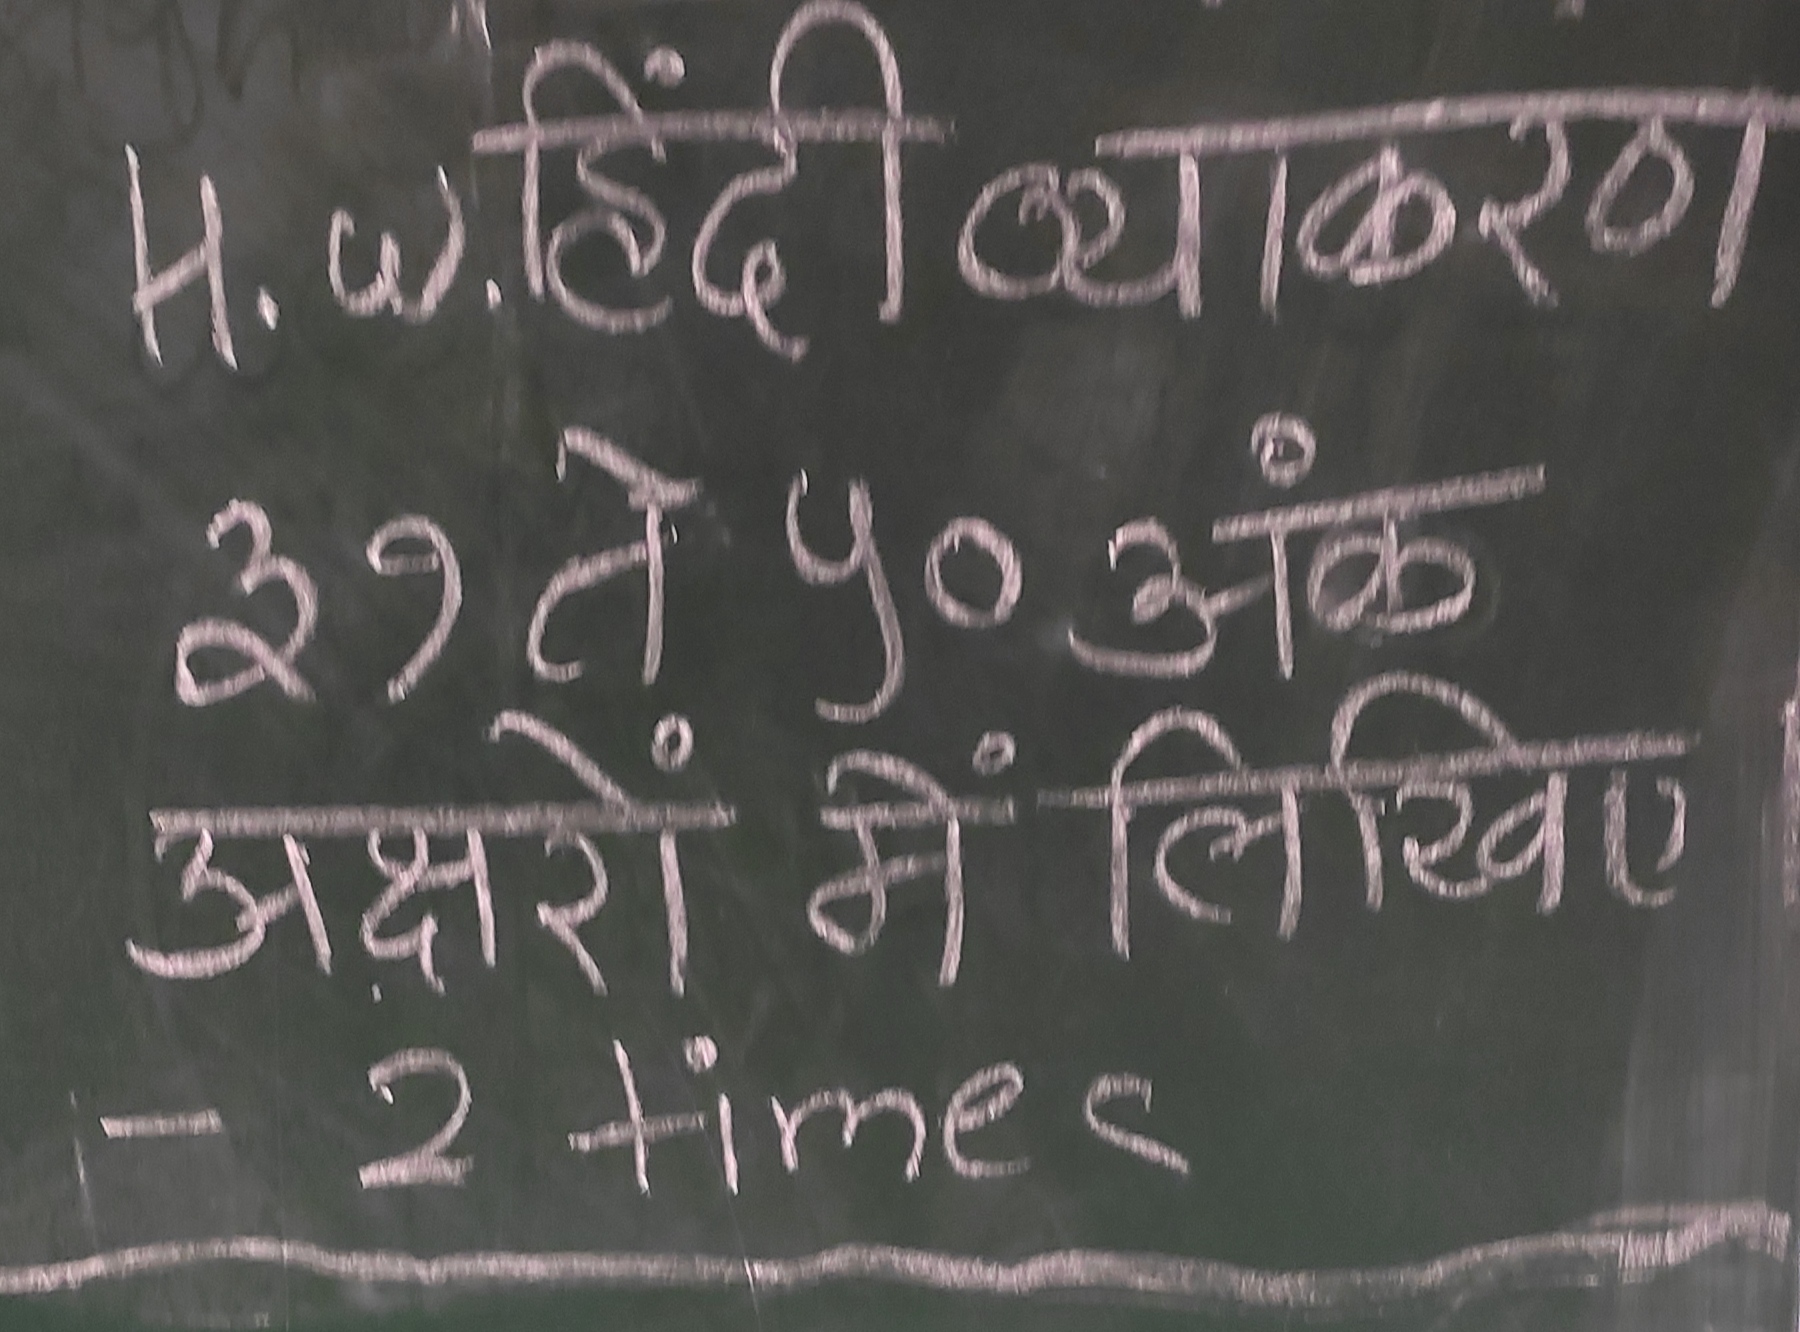 H.W. हिंदी व्याकरण
३१ ते ५० अंक
अक्षरों में लिखिए
- 2 times